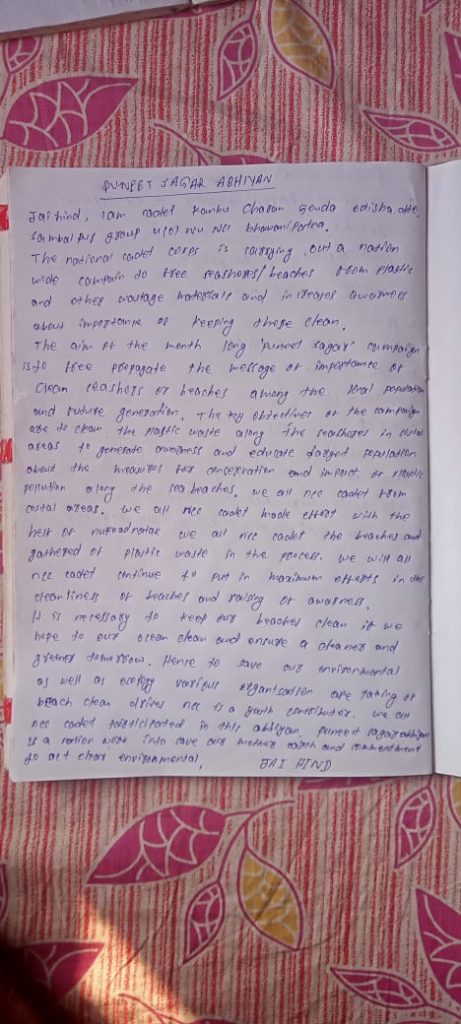 PUNEET SAGAR ABHIYAN
Jai hind, I am cadet Charan gouda odisha dte,
group u(o) ncc bhawanipatna.
The national cadet corps is carrying out a nation
wide campain to free seashores/beaches from plastic
and other wastage materials and increases awarness
about importance of keeping these clean.
The aim of the month long 'puneet sagar' campaign
is to free propogate the message of importance of
clean seashors or beaches among the local population
and future generation. The key objectives of the campaign
are to clean the plastic waste along the seashores in
areas to generate awarness and educate target population
about the for and impact of plastic
pollution along the sea beaches. we all ncc cadet from
costal areas. we all ncc cadet made effort with the
help of nukkad natak we all ncc cadet the beaches and
gathered of plastic waste in the process. we will all
ncc cadet continue to put in maximum efforts in the
cleanliness of beaches and raising of awarness.
It is necessary to keep our beaches clean if we
hope to our ocean clean and ensure a cleaner and
greener tomorrow. Hence to save our environmental
as well as ecology various organisation are taking of
beach clean drives ncc is a contributer. we all
ncc cadet in this abhiyan. puneet sagar abhiyan
is a nation work into save our mother earth and
to act clear environmental. JAI HIND